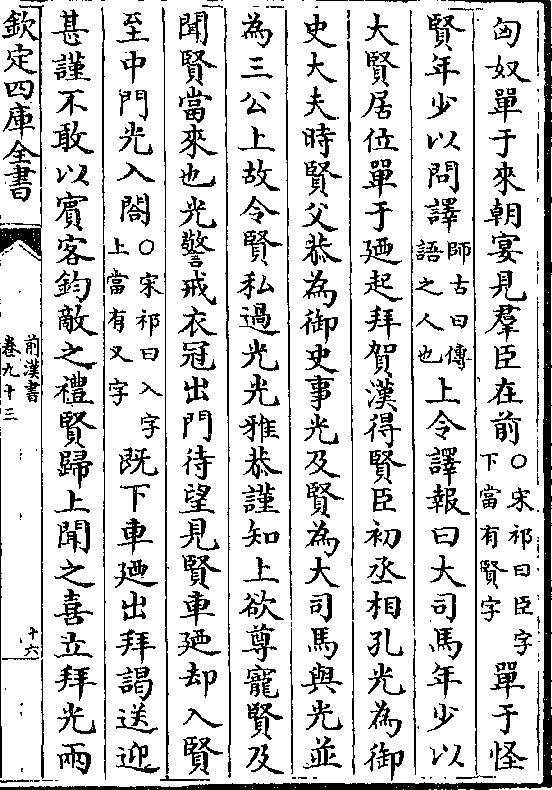 匈奴單于來朝宴見羣臣在前○宋祁曰臣字下當有賢字單于怪
賢年少以問譯師古曰傳語之人也上令譯報曰大司馬年少以
大賢居位單于廼起拜賀漢得賢臣初丞相孔光為御
史大夫時賢父恭為御史事光及賢為大司馬與光並
為三公上故令賢私過光光雅恭謹知上欲尊寵賢及
聞賢當來也光警戒衣冠出門待望見賢車廼却入賢
至中門光入閤○宋祁曰入字上當有又字既下車廼出拜謁送迎
甚謹不敢以賓客鈞敵之禮賢歸上聞之喜立拜光兩
欽定四庫全書
前漢書
卷九十三
十六